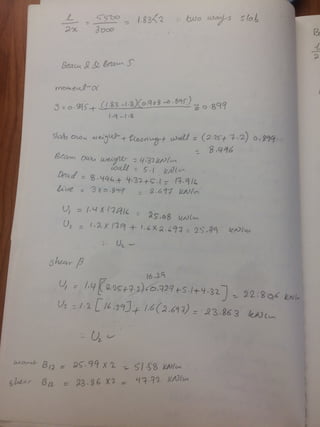 L/2x = 5500/3000 = 1.83 < 2 ∴ two ways slab
Beam 2 & Beam 5
moment α
3 = 0.895 + (1.83-1.8)(0.908-0.895)/(1.9-1.8) = 0.899
Slab own weight + flooring + wall = (2.25+7.2) 0.899
= 8.496
Beam own weight = 4.32 kN/m
wall = 5.1 kN/m
Dead = 8.496 + 4.32 + 5.1 = 17.916
live = 3 x 0.899 = 2.697 kN/m
U1 = 1.4 x 17.916 = 25.08 kN/m
U2 = 1.2 x 17.9 + 1.6 x 2.697 = 25.89 kN/m
∴ U2 ~
shear β
16.29
U1 = 1.4 [(2.25+7.2) x 0.727 + 5.1 + 4.32] = 22.806 kN/m
U2 = 1.2 [16.29] + 1.6 (2.697) = 23.863 kN/m
= U2 ~
moment B12 = 25.99 x 2 = 51.58 kN/m
shear B12 = 23.86 x 2 = 47.72 kN/m